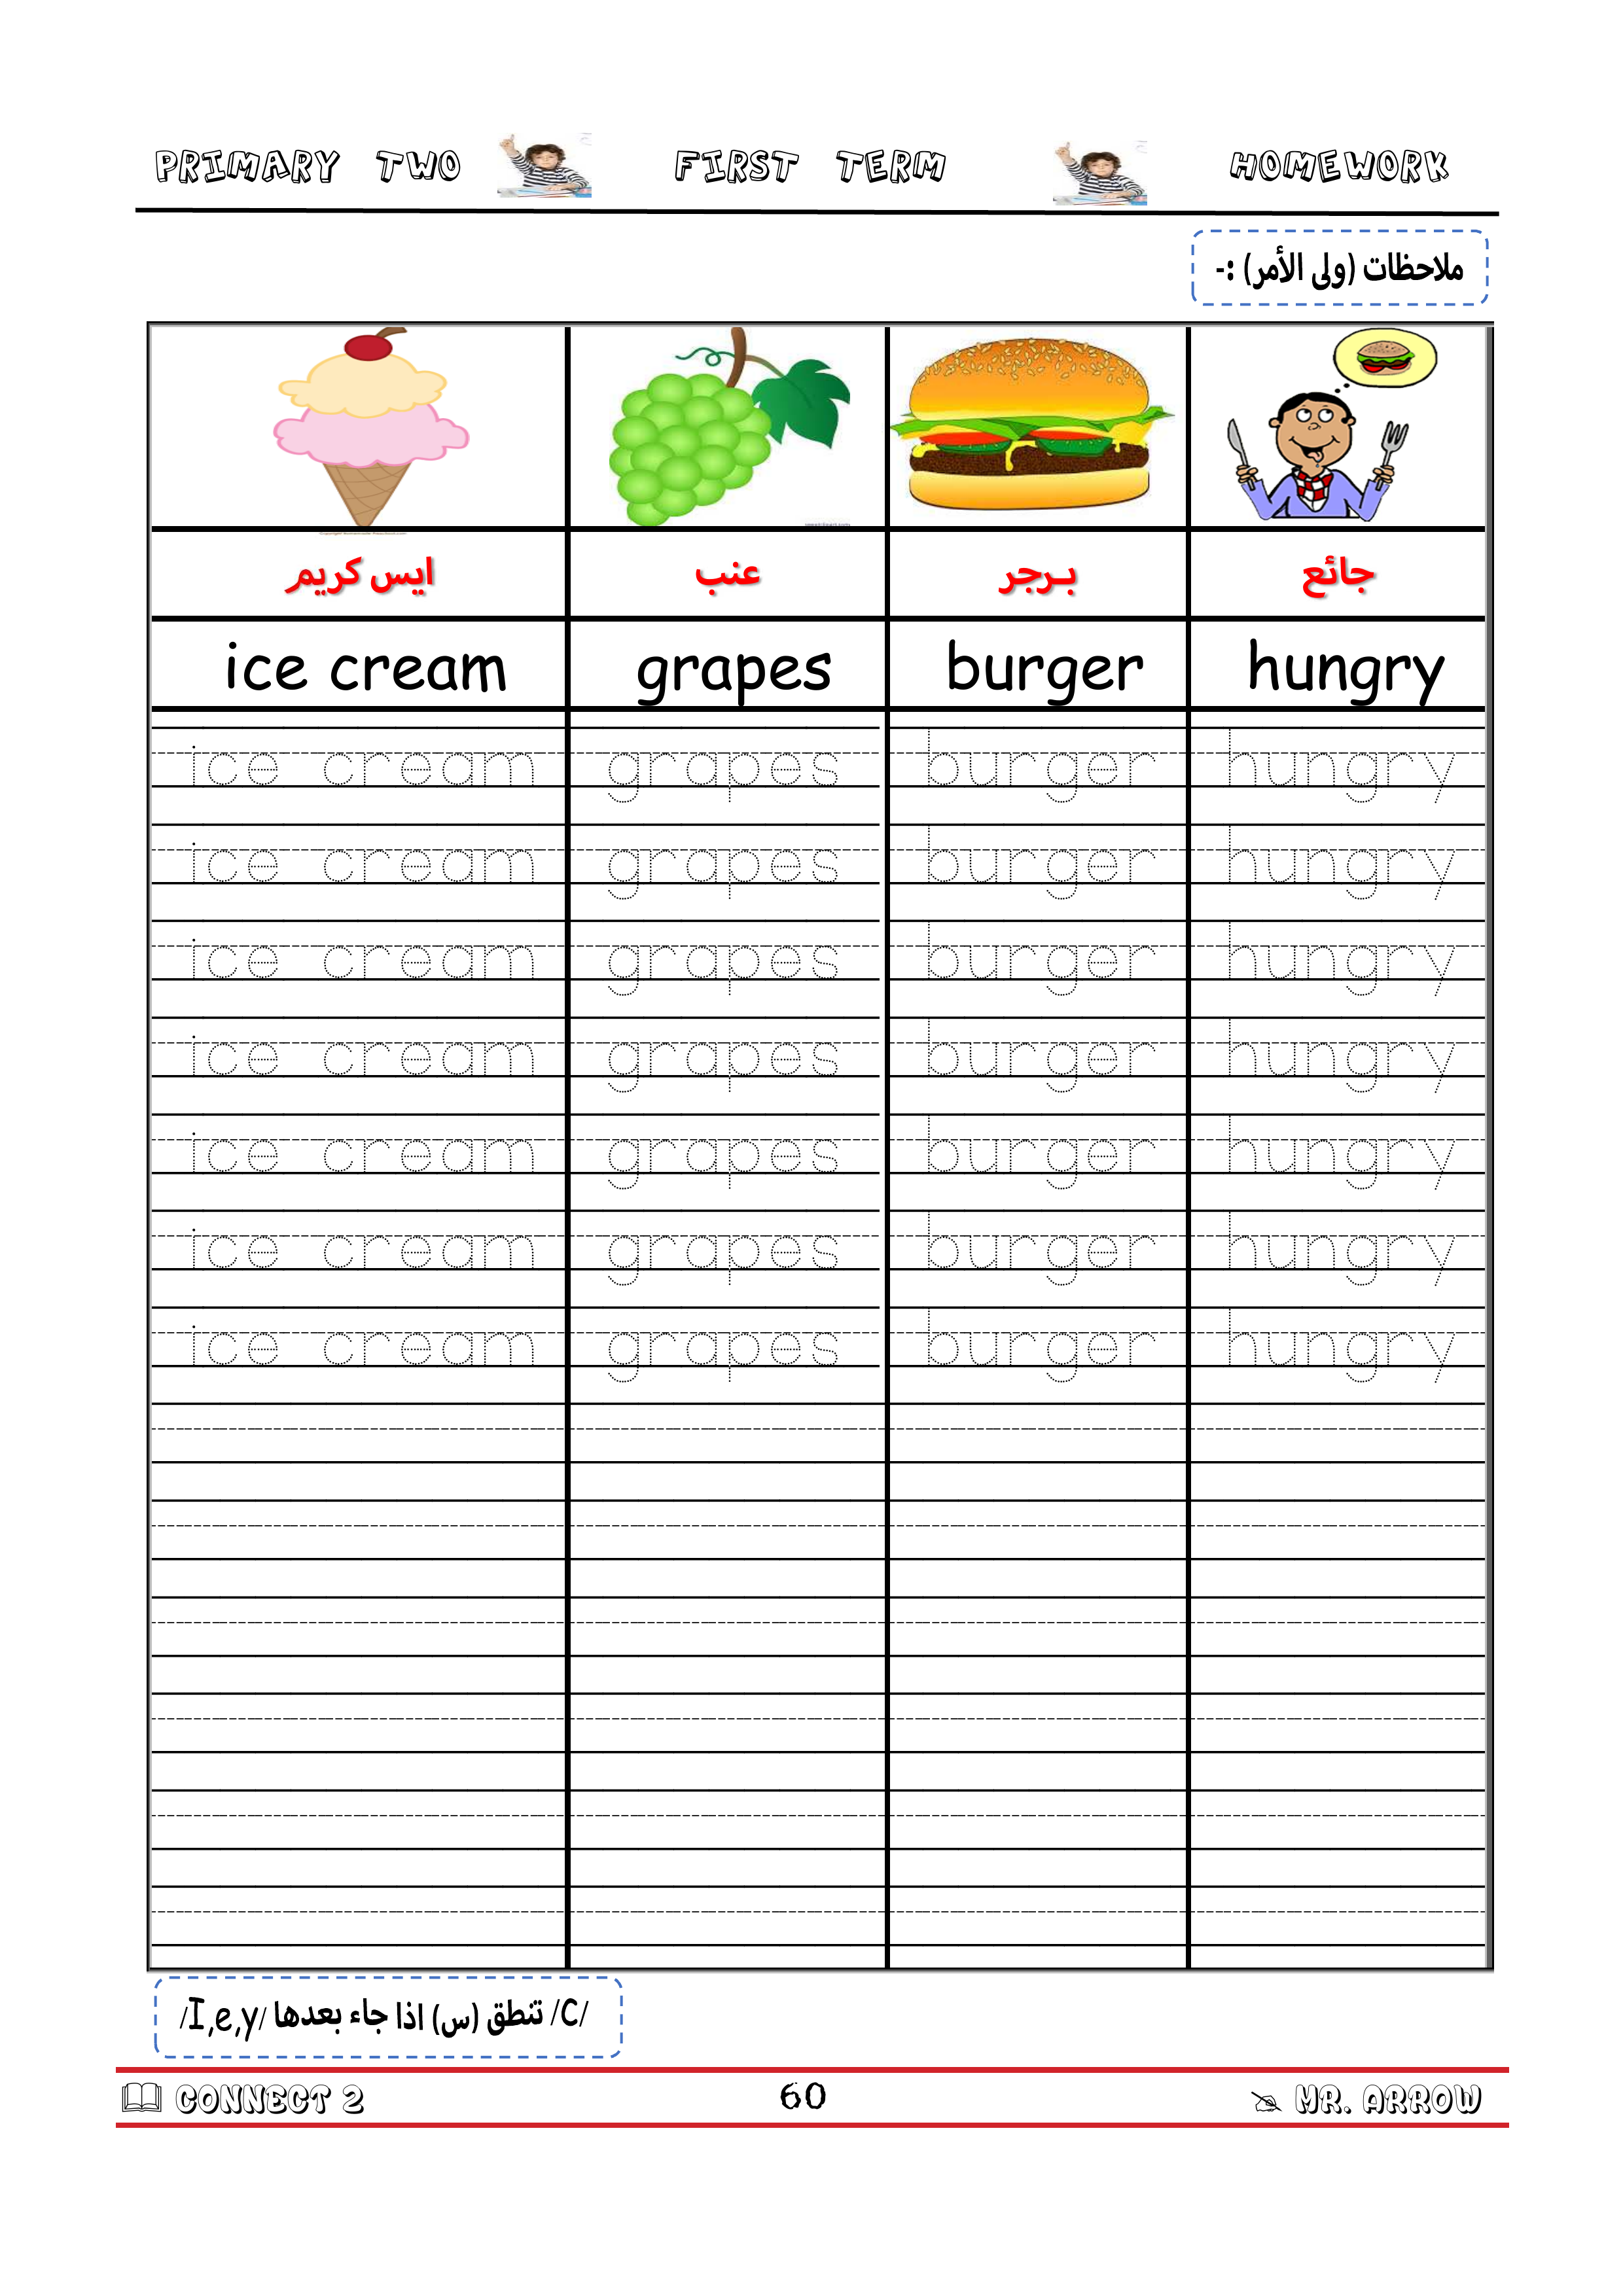 PRIMARY TWO FIRST TERM HOMEWORK
ملاحظات (ولى الأمر) :-
ايس كريم عنب برجر جائع
ice cream grapes burger hungry
ice cream grapes burger hungry
ice cream grapes burger hungry
ice cream grapes burger hungry
ice cream grapes burger hungry
ice cream grapes burger hungry
ice cream grapes burger hungry
ice cream grapes burger hungry
/C/ تنطق (س) اذا جاء بعدها /I,e,y/
CONNECT 2 60 MR. ARROW